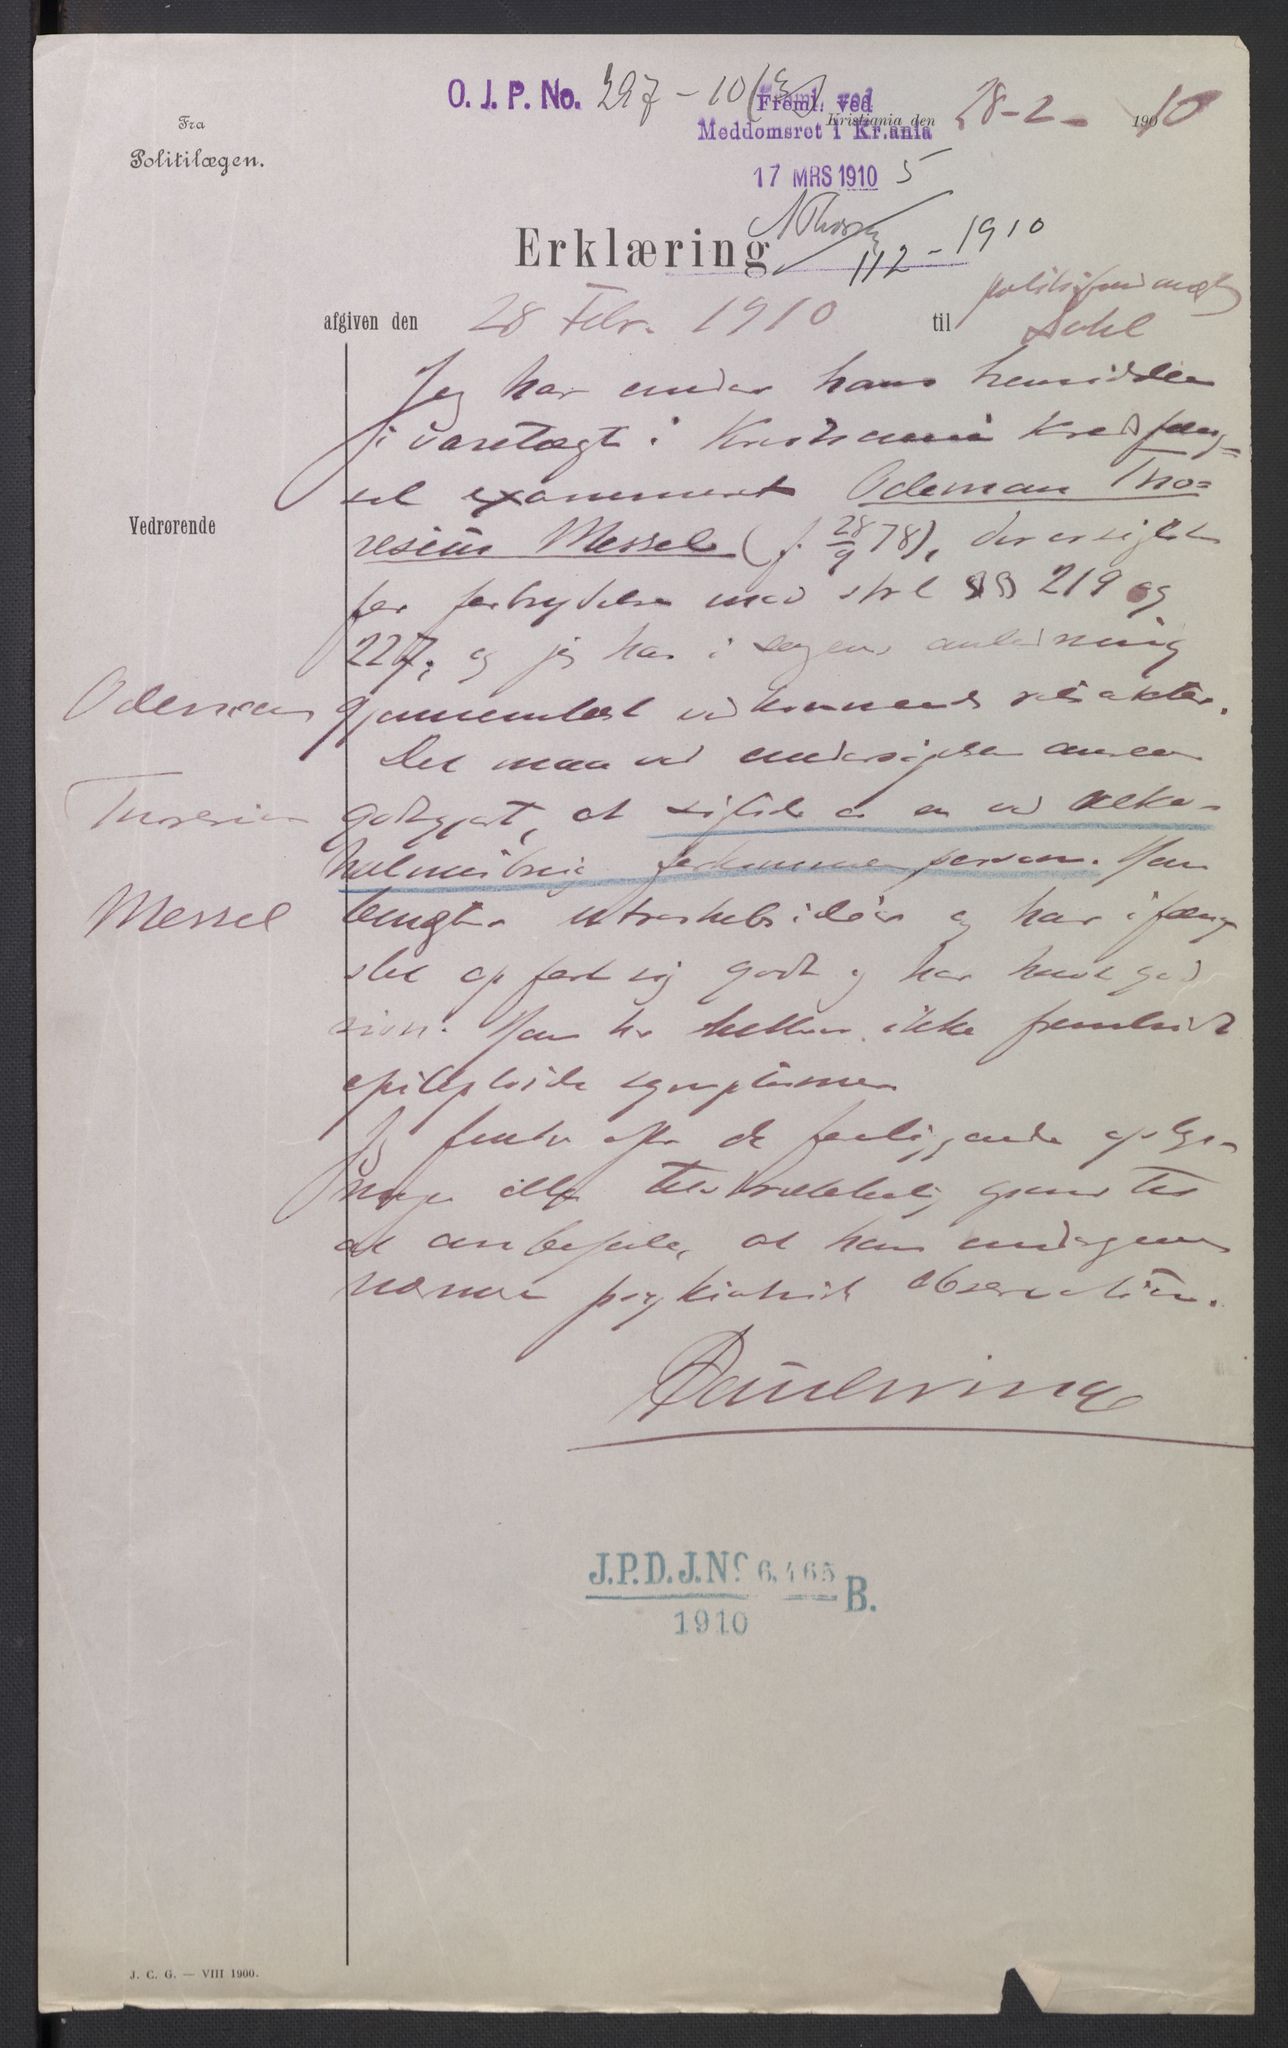 O. J. P. No. 297 - 10 (3)
Freml. ved
Meddomsret i Kr.ania
Kristiania den 28-2- 1910
Fra
Politilægen.
17 MRS 1910 5
Erklæring
112 - 1910
afgiven den 28 Febr. 1910 til politifuldmægtig
Dahl
Jeg har under hans hensidden
i varetægt i Kristiania kredsfæng=
sel examineret Odeman Tho=
Vedrørende
resius Messel (f. 28/9 78), der er sigtet
for forbrydelse mod strl §§ 219 og
227, og jeg har i sagens anledning
Odeman
gjennemlæst vedkommende retsakter.
Det maa ved undersøgelsen ansees
Thoresius
godtgjort, at sigtede er en ved alko-
holmisbrug forkommen person. Han
Messel
benægter utroskabsideer og har i fæng
slet opført sig godt og har havt god
søvn. Han har heller ikke frembudt
epileptoide symptomer
Jeg finder efter de foreliggende oplys-
ninger ikke tilstrækkelig grund til
at anbefale, at han undergives
nærmere psykiatrisk observation.
J.P.D.J.No 6,465 B.
1910
J. C. G. — VIII 1900.